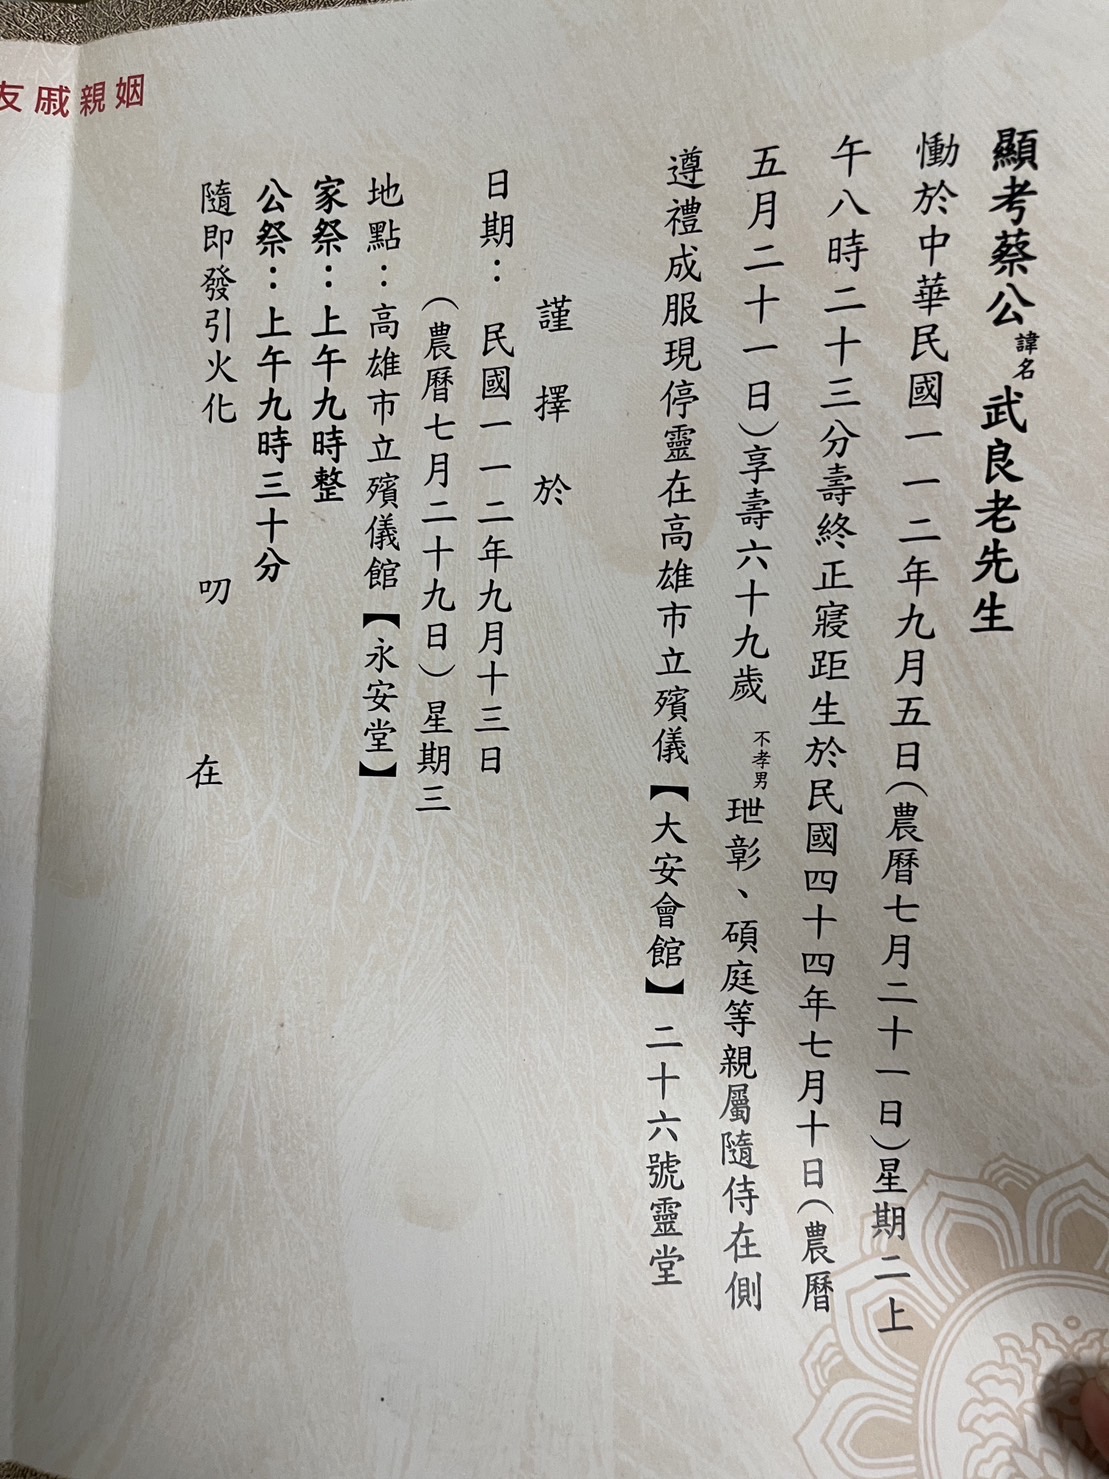 顯考蔡公諱名武良老先生
慟於中華民國一一二年九月五日(農曆七月二十一日)星期二上
午八時二十三分壽終正寢距生於民國四十四年七月十日(農曆
五月二十一日)享壽六十九歲 不孝男 玴彰、碩庭等親屬隨侍在側
遵禮成服現停靈在高雄市立殯儀【大安會館】二十六號靈堂
謹擇於
日期：民國一一二年九月十三日
(農曆七月二十九日)星期三
地點：高雄市立殯儀館【永安堂】
家祭：上午九時整
公祭：上午九時三十分
隨即發引火化
叨在
姻親戚友